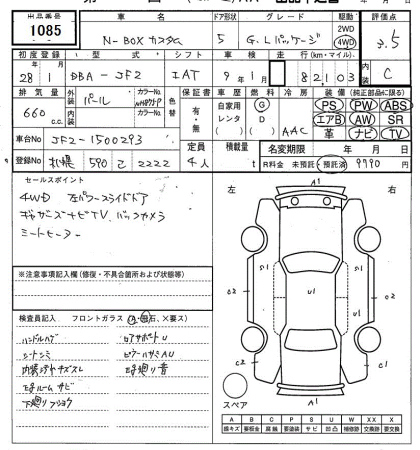 出品番号 車名 ドア形状 グレード 駆動 評価点
1085 N-BOXカスタム 5 G.Lパッケージ 2WD 4WD 3.5
初度登録 型式 シフト 車検 走行(km・マイル) 内装
28 1 DBA-JF2 IAT 9年1月 82103 C
排気量 外装 カラーNo. 色替 保証書 車歴 燃料 冷房 装備(純正部品に限る)
660 c.c. パール 内装 カラーNo. 有・無 自家用 レンタ G D AAC PS PW ABS
エアB AW SR
革 ナビ TV
車台No JF2-1500293 定員 積載量 名変期限 年 月 日
登録No 札幌 590 こ 2222 4人 t R料金 未預託・預託済 9790
セールスポイント
4WD 左パワースライドドア
ギャザズナビTV バックカメラ
シートヒーター
※注意事項記入欄(修復・不具合箇所および状態等)
検査員記入 フロントガラス(A、飛石、×要ス)
ハンドルハゲ ロアサポートU
シートシミ
下廻りフショク
左 右
A1
S1 S1
C2 U1 C2
U1
C2 C1
A1
スペア
A B C P S U W X XX
線キズ 要鈑金 腐蝕 要塗装 サビ 凹凸 補修跡 交換跡 要交換